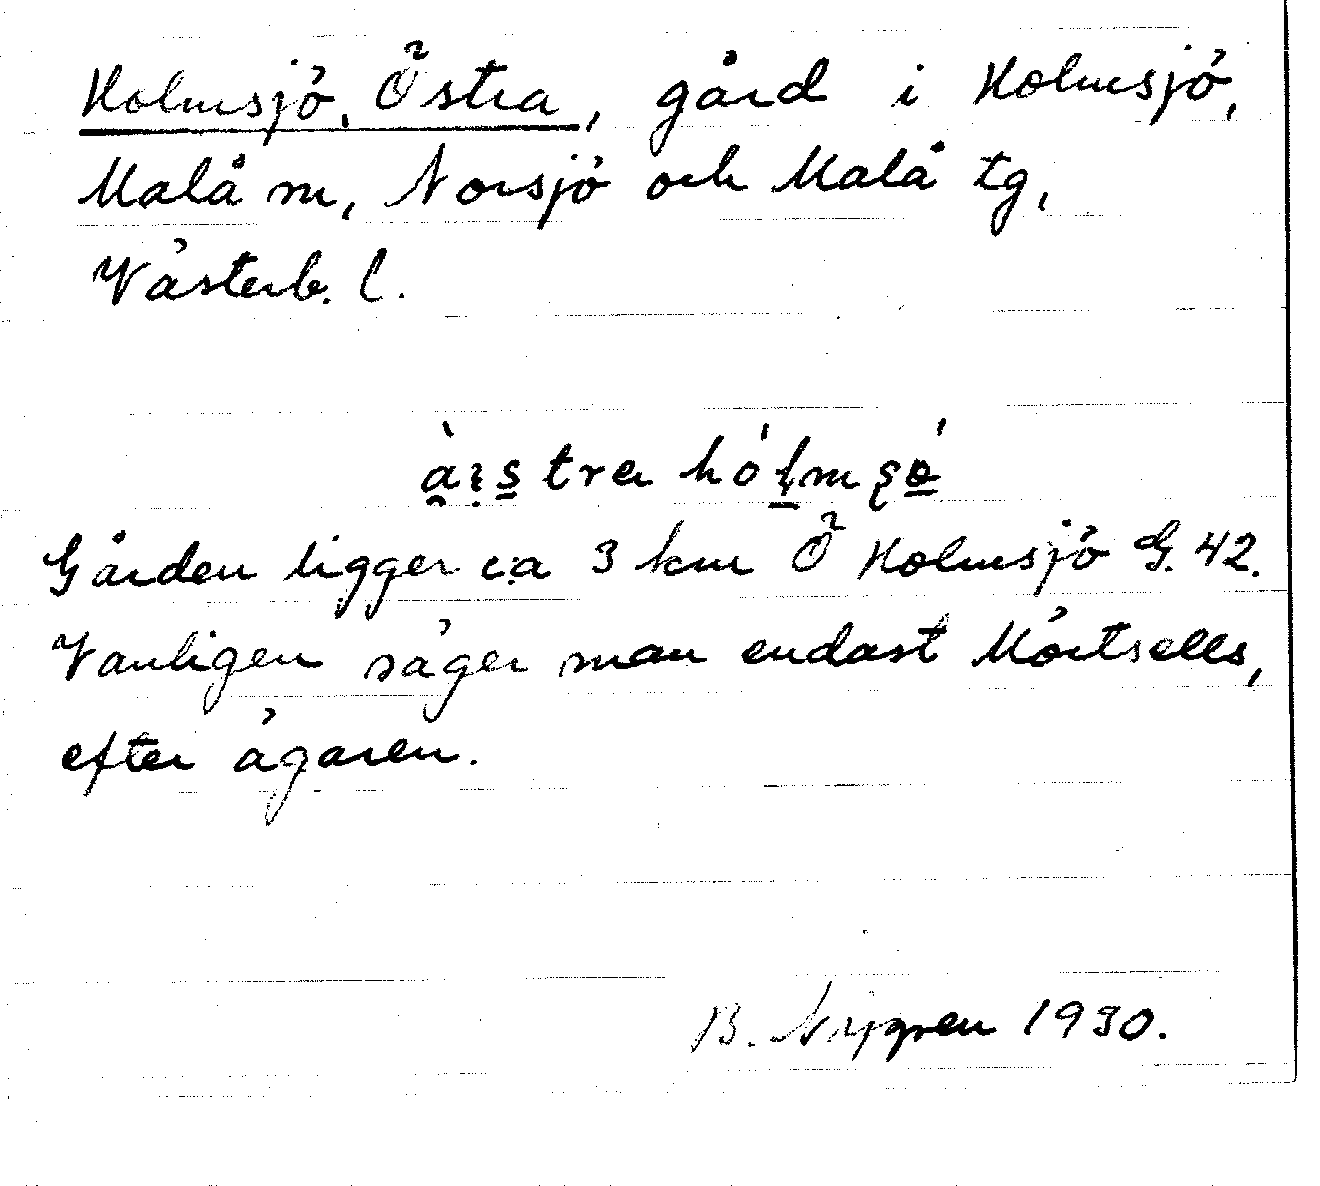 Holmsjö, Östra, gård i Holmsjö,
Malå sn, Norsjö och Malå tg,
Västerb. l.
Gården ligger ca 3 km Ö Holmsjö G. 42.
Vanligen säger man endast Mörtsells,
efter ägaren.
B. Nygren 1930.